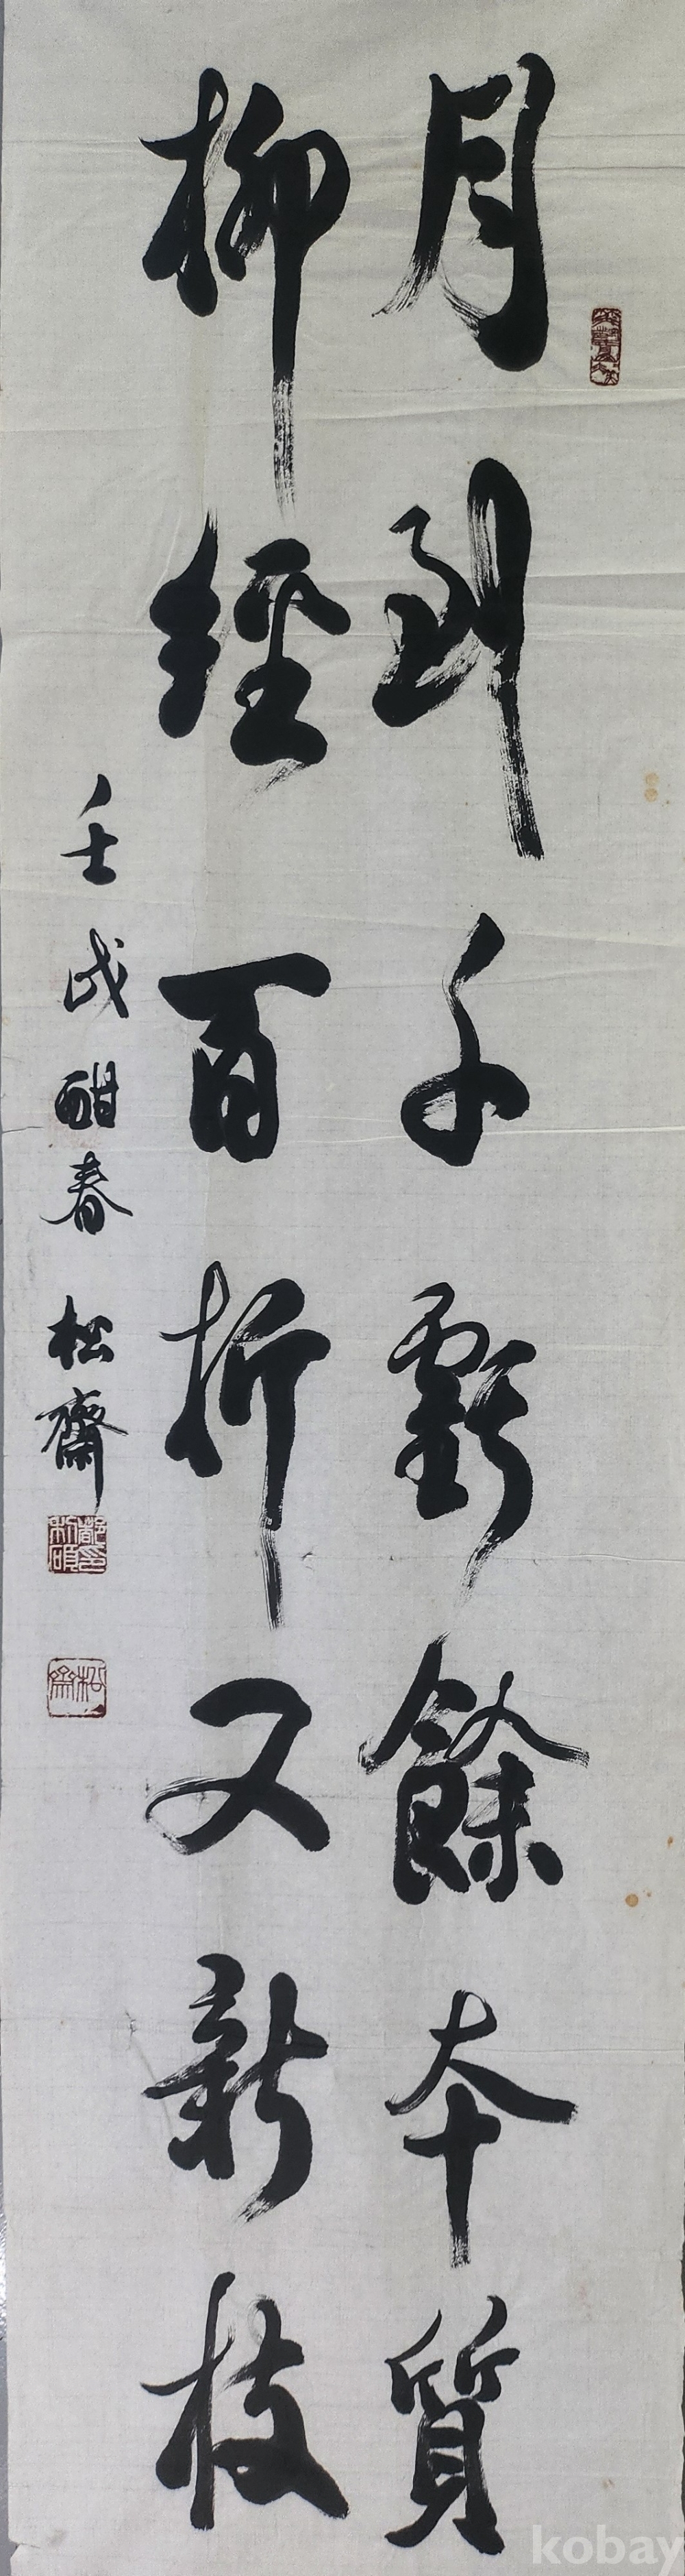 月到千虧餘本質
柳經百折又新枝
壬戌酣春 松齋
松齋
kobay